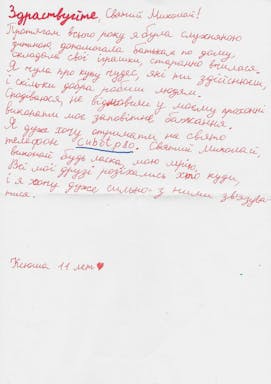 Здраствуйте, Святий Миколай!
Протягом всього року я була слухняною
дитиною, допомогала батькам по дому,
складала свої іграшки, старанно вчилася.
Я чула про купу чудес, які ти здійснюєш,
і скільки добра робиш людям.
Сподіваюся, не відмовиш у моєму проханні
виконати моє заповітне бажання.
Я дуже хочу отримати на свято
телефон. Святий Миколай,
виконай будь ласка, мою мрію,
Всі мої друзі розїхались хто куди,
і я хочу дуже сильно з ними зв'язува-
тися.
Ксюша 11 лет